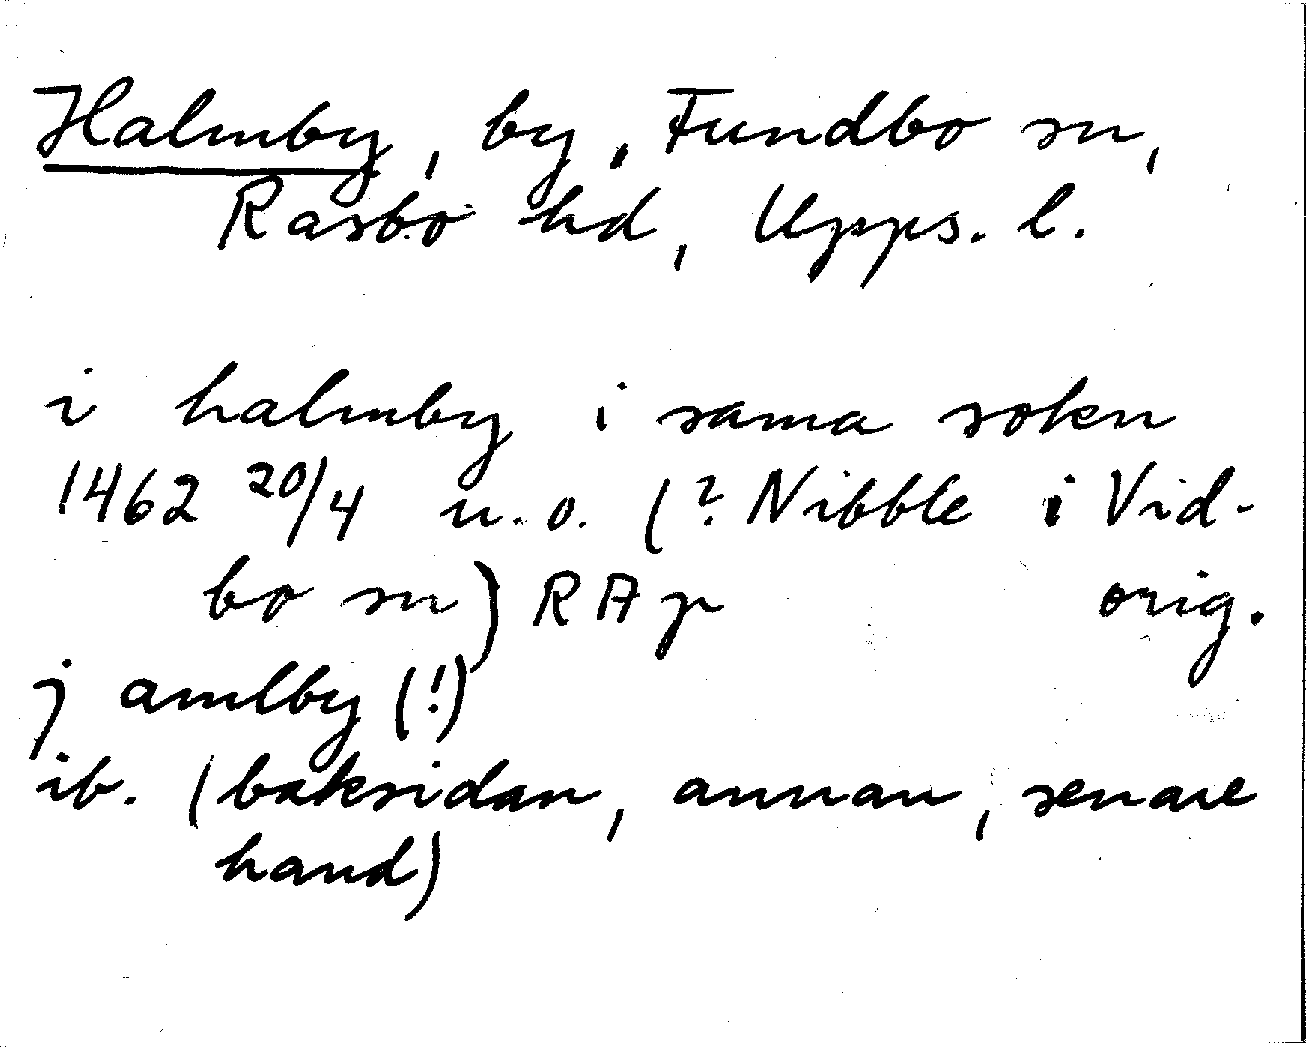 Halmby, by, Fundbo sn,
Rasbo hd, Upps. l.
i halmby i sama sokn
1462 20/4 u.o. (? Nibble i Vid-
bo sn) RAp orig.
j amlby (!)
ib. (baksidan, annan, senare
hand)